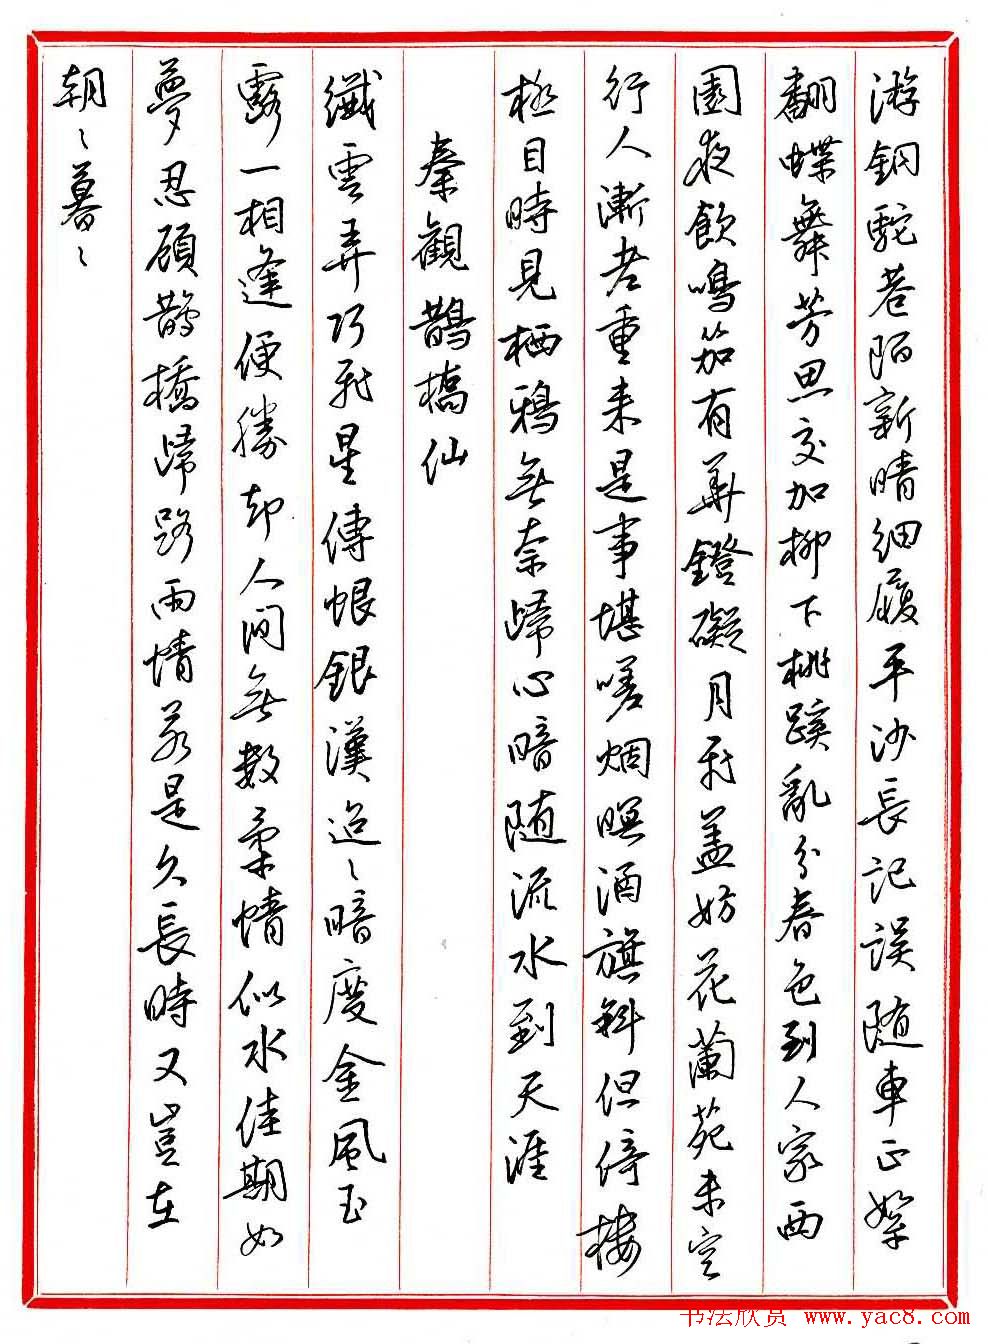 游銅駝巷陌新晴細履平沙長記誤随車正絮
翻蝶舞芳思交加柳下桃蹊亂分春色到人家西
園夜飲鳴笳有華鐙礙月飛盖妨花蘭苑未空
行人漸老重来是事堪嗟烟暝酒旗斜但倚楼
極目時見栖鴉無奈歸心暗随流水到天涯
秦觀鵲橋仙
纖雲弄巧飛星傳恨銀漢迢〻暗度金風玉
露一相逢便勝却人间無數柔情似水佳期如
夢忍顧鵲橋歸路兩情若是久長時又豈在
朝〻暮〻
书法欣赏 www.yac8.com